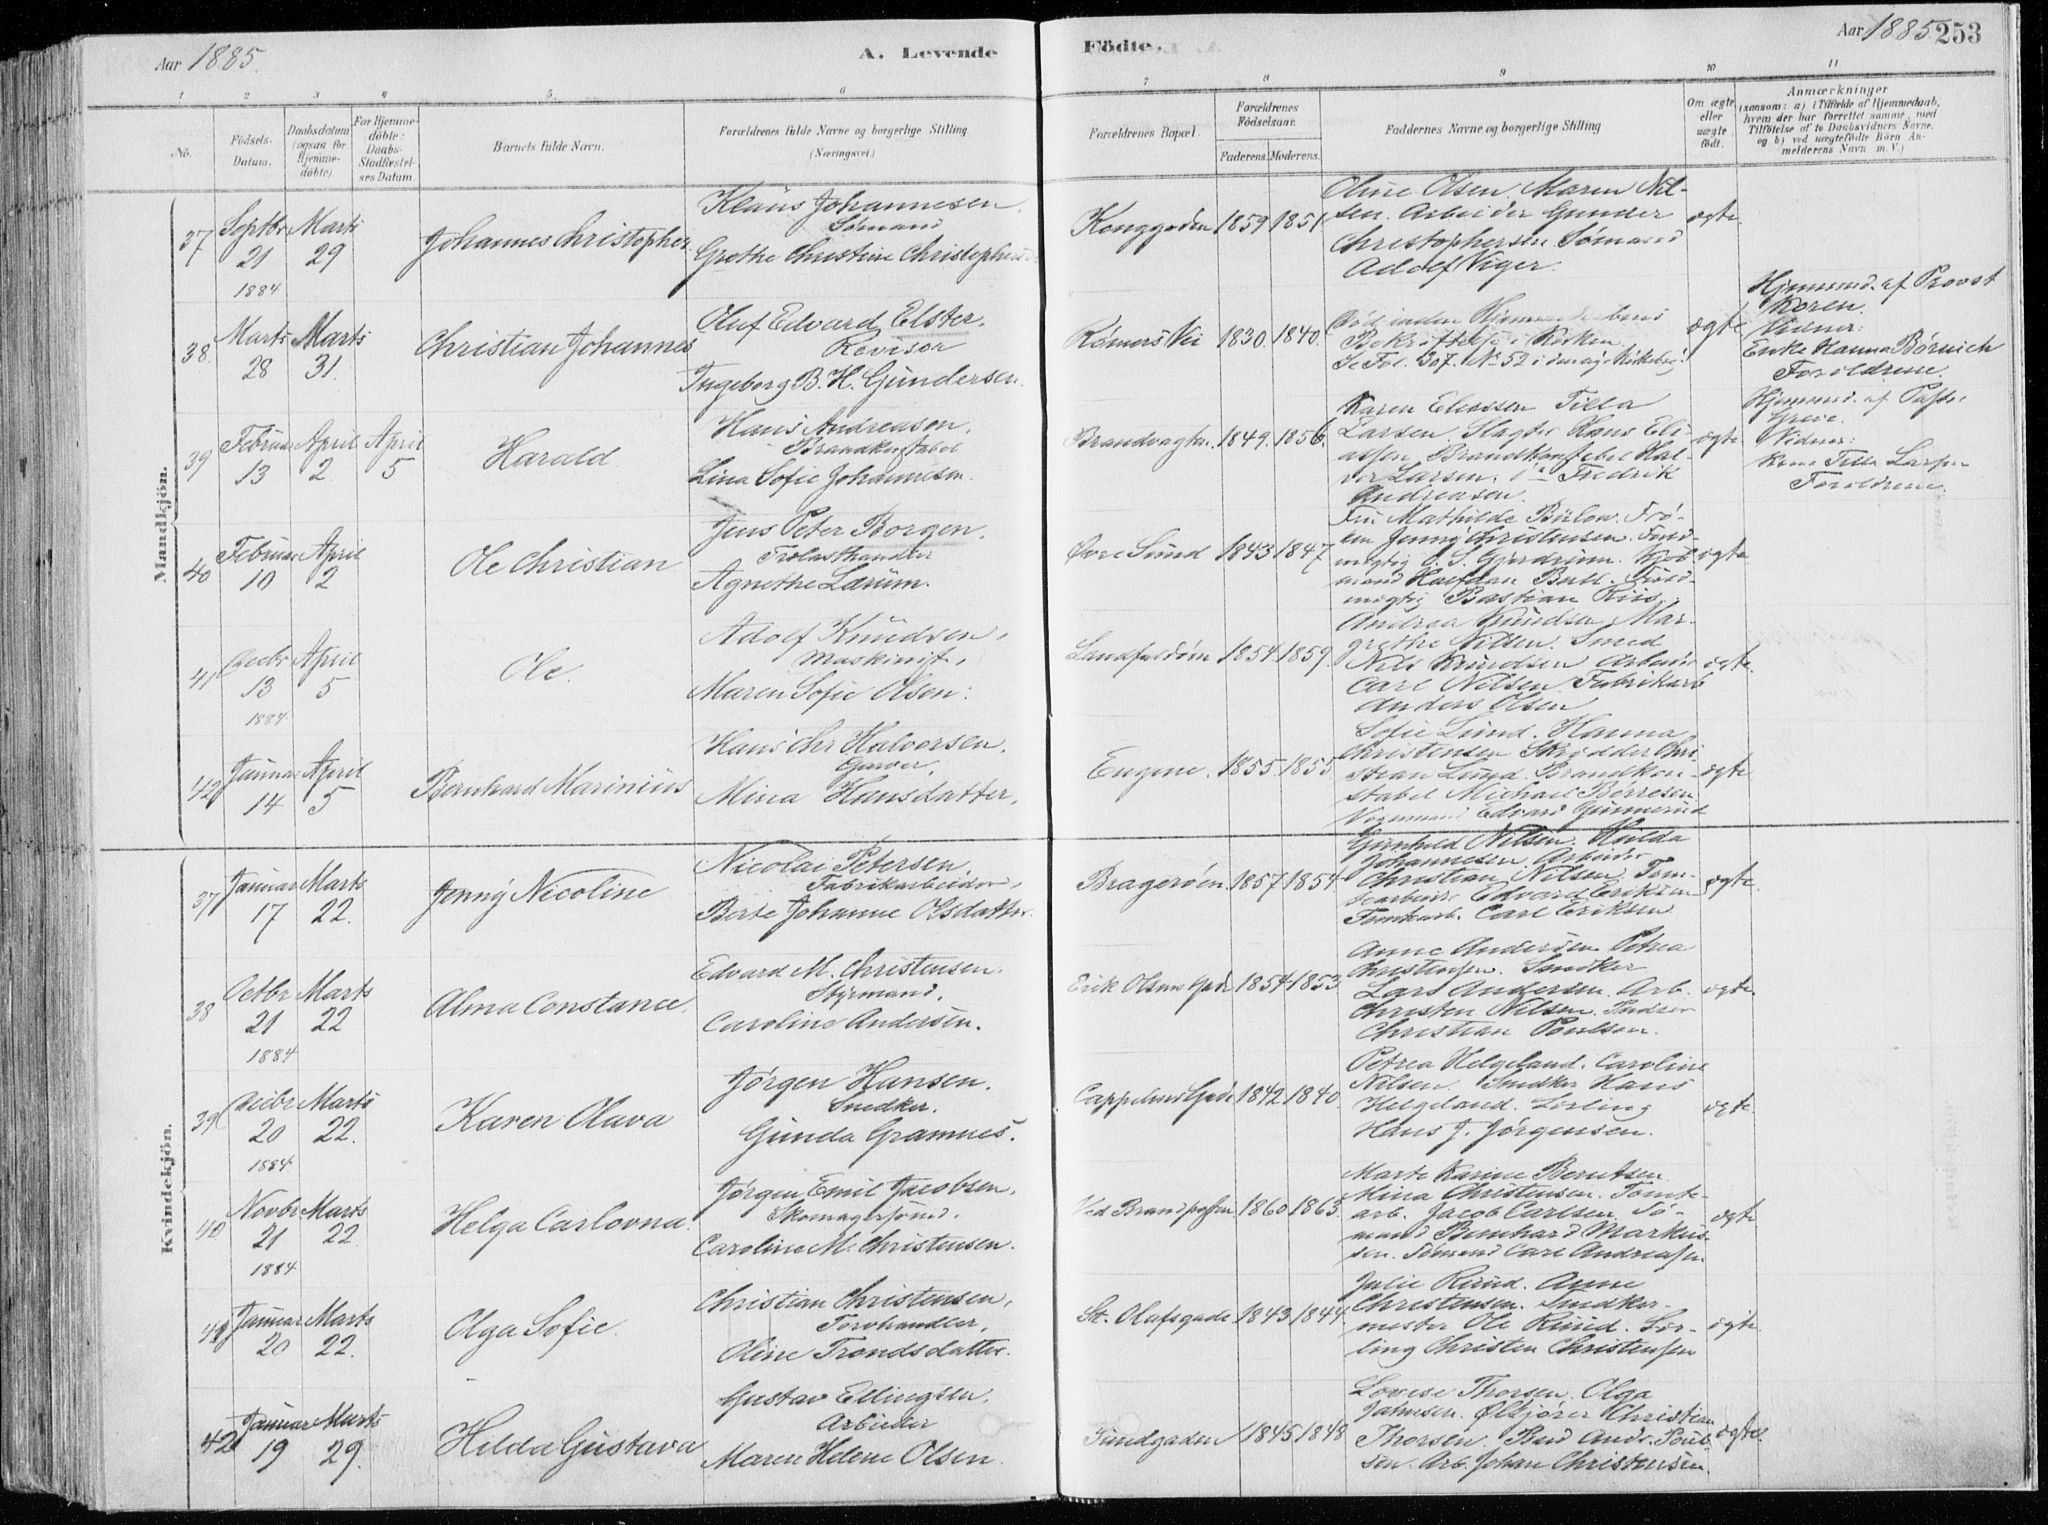 Aar 1885.
A. Levende
Födte.
Aar 1885
253
1 2 3 4 5. 6 7 8 9 10 11
No.
Födsels-Datum.
Daabsdatum (ogsaa for Hjemme-döbte).
For Hjemme-döbte: Daabs-Stadfæstel-ses Datum.
Barnets fulde Navn.
Forældrenes fulde Navne og borgerlige Stilling
(Næringsvei.)
Forældrenes Bopæl.
Forældrenes Födselsaar.
Faderens. Moderens.
Faddernes Navne og borgerlige Stilling
Om ægte eller uægte födt.
Anmærkninger
(saasom: a) i Tilfælde af Hjemmedaab,
hvem der har forrettet samme, med
Tilföielse af to Daabsvidners Navne.
og b) ved uægtefödte Börn An-
melderens Navn m. V.)
Mandkjön.
37 Septbr 21 1884 Marts 29 Johannes Christopher
Klaus Johannesen.
Sømand
Grethe Christine Christophersd
Konggaden 1859 1851
Oline Olsen. Maren Nil-
sen. Arbeider Gunder
Christophersen Sømand
Adolf Viger.
ægte.
38. Marts 28 Marts 31. Christian Johannes
Oluf Edvard Elster.
Revisor
Ingeborg B. H. Gundersen.
Rømers Vei 1830. 1840.
Død inden Hjemmedaabens
Bekræftelse i Kirken.
ægte
Hjemmed. af Provst
Koren.
Vidner:
Enke Hanna Børnich
Forældrene.
39 Februar 13 April 2 April 5 Harald
Hans Andreasen.
Brandkonstabel
Lina Sofie Johannesen.
Brandvagten. 1849. 1856.
Karen Eliassen Tilla
Larsen. Slagter Hans Eli-
assen, Brandkonstabel Hal-
vor Larsen. do Fredrik
Andreasen.
ægte.
Hjemmed. af Pastor
Greve.
Vidner:
Kone Tilla Larsen
Forældrene.
40 Februar 10 April 2 Ole Christian
Jens Peter Borgen.
Trælasthandler
Agnethe Lærum.
Øvre Sund 1843 1847
Fru Mathilde Bülow. Frø-
ken Jenny Christensen. Fuld-
mægtig O. S. Gjerdrum. Kjøb-
mand Halfdan Bull. Fuld-
mægtig Bastian Riis.
ægte
41 Decbr 13 1884 April 5 Ole.
Adolf Knudsen,
Maskinist,
Maren Sofie Olsen:
Landfaldøen 1854. 1859.
Andrea Knudsen Mar-
grethe Nilsen. Smed
Nils Knudsen Arbeider
Carl Nilsen. Fabrikarb
Anders Olsen
ægte.
42 Januar 14 April 5 Bernhard Marinius
Hans Chr Halvorsen.
Garver.
Mina Hansdatter.
Eugene. 1855. 1855
Sofie Lund. Hanna
Christensen Skrædder Chri-
stian Lund. Brandkon-
stabel Michael Børresen
Vognmand Edvard Gunnerud
ægte
Kvindekjön.
37 Januar 17 Marts 22. Jenny Nicoline
Nicolai Petersen.
Fabrikarbeider,
Berte Johanne Olsdatter.
Bragerøen. 1857. 1854.
Gunhild Nilsen. Hulda
Johannesen. Arbeider
Christian Nilsen. Tom-
tearbeider Edvard Eriksen
Tomtearb. Carl Eriksen
ægte.
38 Octbr 21 1884 Marts 22 Alma Constance.
Edvard M. Christensen.
Styrmand.
Caroline Andersen.
Erik Olsens Gade 1854 1853
Anne Andersen Petrea
Christensen. Snedker
Lars Andersen. Arb.
Christen Nilsen.
Christian Poulsen.
ægte.
39 Decbr 20 1884 Marts 22. Karen Olava
Jørgen Hansen.
Snedker.
Gunda Gramnes.
Cappelens Gade 1842 1840.
Petrea Helgeland. Caroline
Nilsen. Snedker Hans
Helgeland. Lærling
Hans J. Jørgensen.
ægte
40 Novbr 21 1884 Marts 22 Helga Carlovna.
Jørgen Emil Jacobsen.
Skomagersvend.
Caroline M. Christensen.
Ved Brandposten 1860 1863.
Marte Karine Berntsen.
Mina Christensen. Tomte-
arb. Jacob Carlsen. Sø-
mand Bernhard Markus-
sen. Sømand Carl Andreasen
ægte
41 Januar 20 Marts 22. Olga Sofie.
Christian Christensen.
Torvhandler,
Oline Trondsdatter.
St. Olafsgade 1843 1844.
Julie Ruud. Anne
Christensen. Snedker-
mester Ole Ruud. Lær-
ling Christen Christensen
ægte
42 Januar 19 Marts 29. Hilda Gustava
Gustav Ellingsen.
Arbeider
Maren Helene Olsen.
Sundgaden 1845 1848
Lovise Thorsen. Olga
Jahnsen. Ølkjører Christian
Thorsen. Bud Andr. Poul-
sen. Arb. Johan Christensen.
ægte.